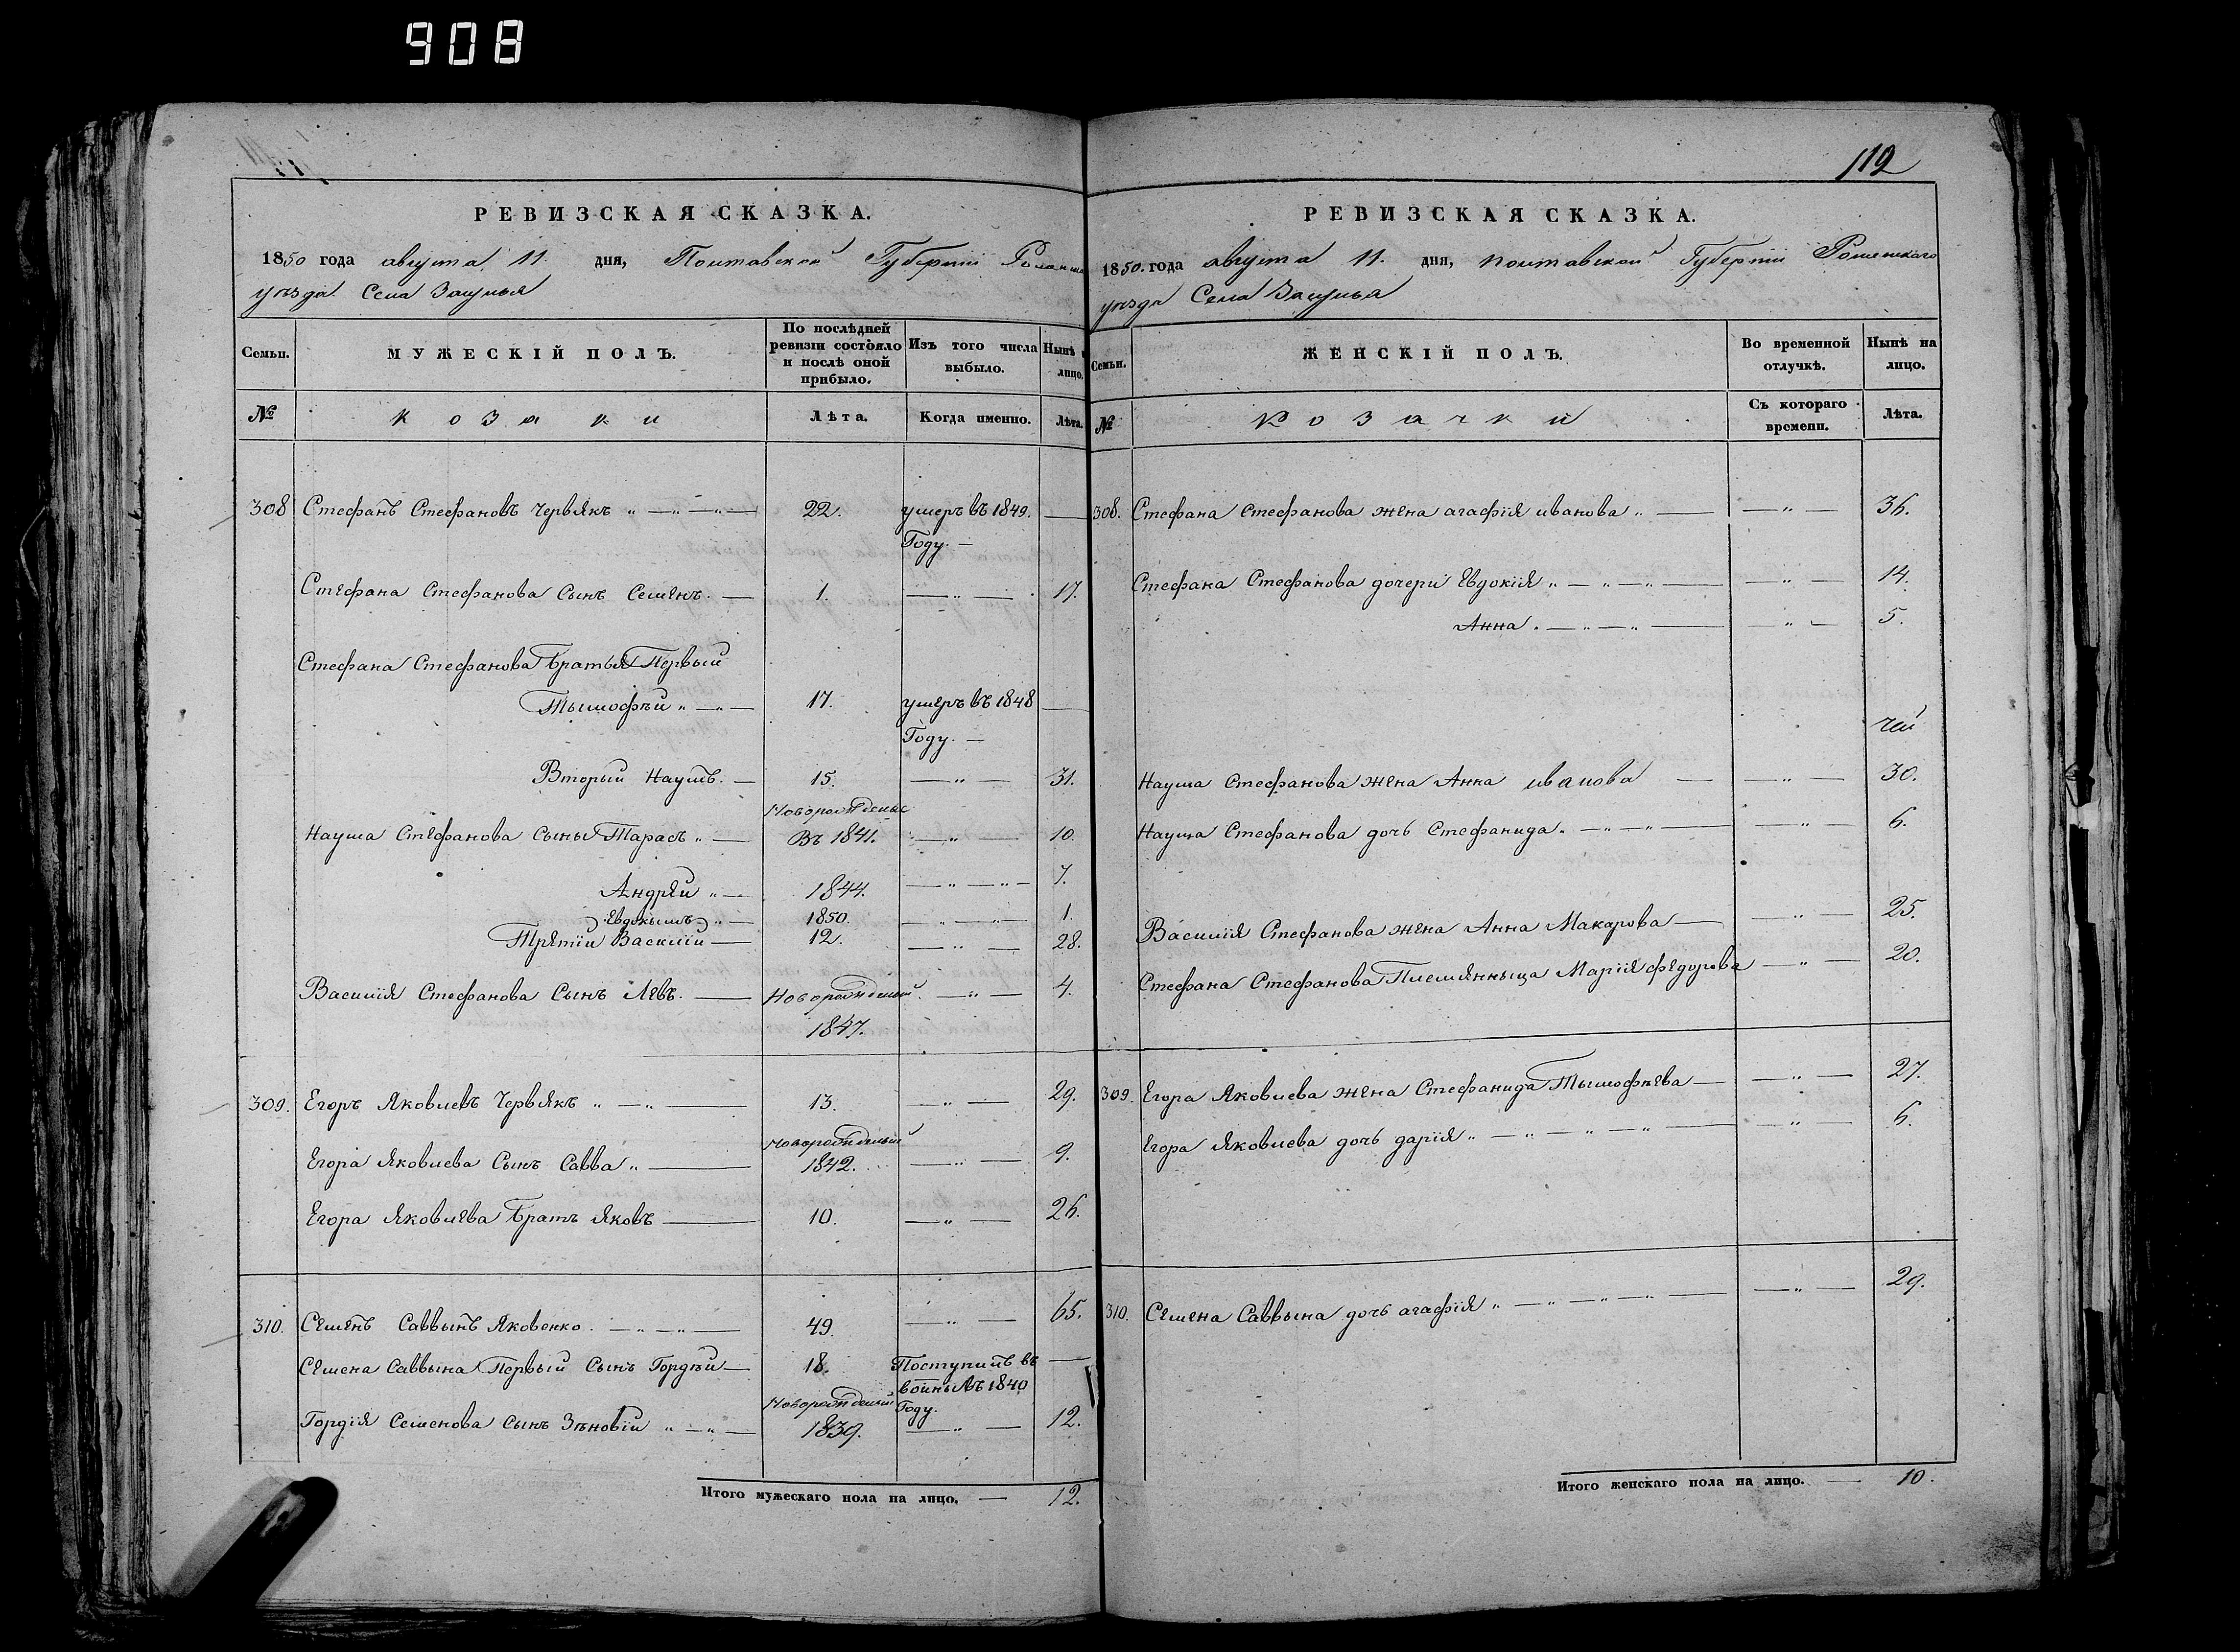 908
РЕВИЗСКАЯ СКАЗКА.
1850 года августа 11. дня, Полтавской Губерніи
уѣзда. Села Засулья
Семьи. МУЖЕСКІЙ ПОЛЪ. По послѣдней ревизіи состояло и послѣ оной прибыло. Изъ того числа выбыло. Нынѣ лицо.
№ Козаки Лѣта. Когда именно. Лѣта.
308 Стефанъ Стефановъ Червякъ 22. умеръ въ 1849. —
Году. —
Стефана Стефанова Сынъ Семенъ. — 1. — „ — 17.
Стефана Стефанова Братья Первый
Тымофѣй „ — „ — 17. умеръ въ 1848 —
Году. —
Вторый Наумъ. — 15. — „ — 31.
Новорожденые
Наума Стефанова Сыны Тарасъ „ — Въ 1841. — „ — 10.
Андрей „ — 1844. — „ — „ — 7.
Евдокымъ „ — 1850. — „ — „ — 1.
Третій Василій — 12. — „ — 28.
Василія Стефанова Сынъ Левъ. — Новорожденый. — „ — 4.
1847.
309. Егоръ Яковлевъ Червякъ „ — „ — 13. — „ — 29.
Новорожденый
Егора Яковлева Сынъ Савва „ — 1842. — „ — 9.
Егора Яковлева Братъ Яковъ — 10. — „ — 26.
310. Семенъ Саввынъ Яковенко. — „ — „ — 49. — „ — 65.
Семена Саввына Первый Сынъ Гордѣй — 18. Поступилъ въ —
воины въ 1840
Новорожденый Году.
Гордія Семенова Сынъ Зѣновій „ — „ — 1839. — „ — 12.
Итого мужескаго пола на лицо. — 12.
112
РЕВИЗСКАЯ СКАЗКА.
1850. года августа 11. дня, Полтавской Губерніи
уѣзда Села Засулья
Семьи. ЖЕНСКІЙ ПОЛЪ. Во временной отлучкѣ. Нынѣ на лицо.
№ Козачки Съ котораго времени. Лѣта.
308. Стефана Стефанова жена агафія иванова „ — — „ — 36.
Стефана Стефанова дочери Евдокія „ — „ — „ — — „ — 14.
Анна. — „ — „ — — „ — 5.
Наума Стефанова жена Анна иванова — — „ — 30.
Наума Стефанова дочь Стефанида. — „ — „ — — „ — 6.
Василія Стефанова жена Анна Макарова — — „ — 25.
Стефана Стефанова Племянныца Марія федорова — „ — 20.
309. Егора Яковлева жена Стефанида Тымофѣева — — „ — 27.
Егора Яковлева дочь дарія „ — „ — „ — „ — — „ — 6.
310. Семена Саввына дочь агафія „ — „ — „ — „ — — „ — 29.
Итого женскаго пола на лицо. — 10.